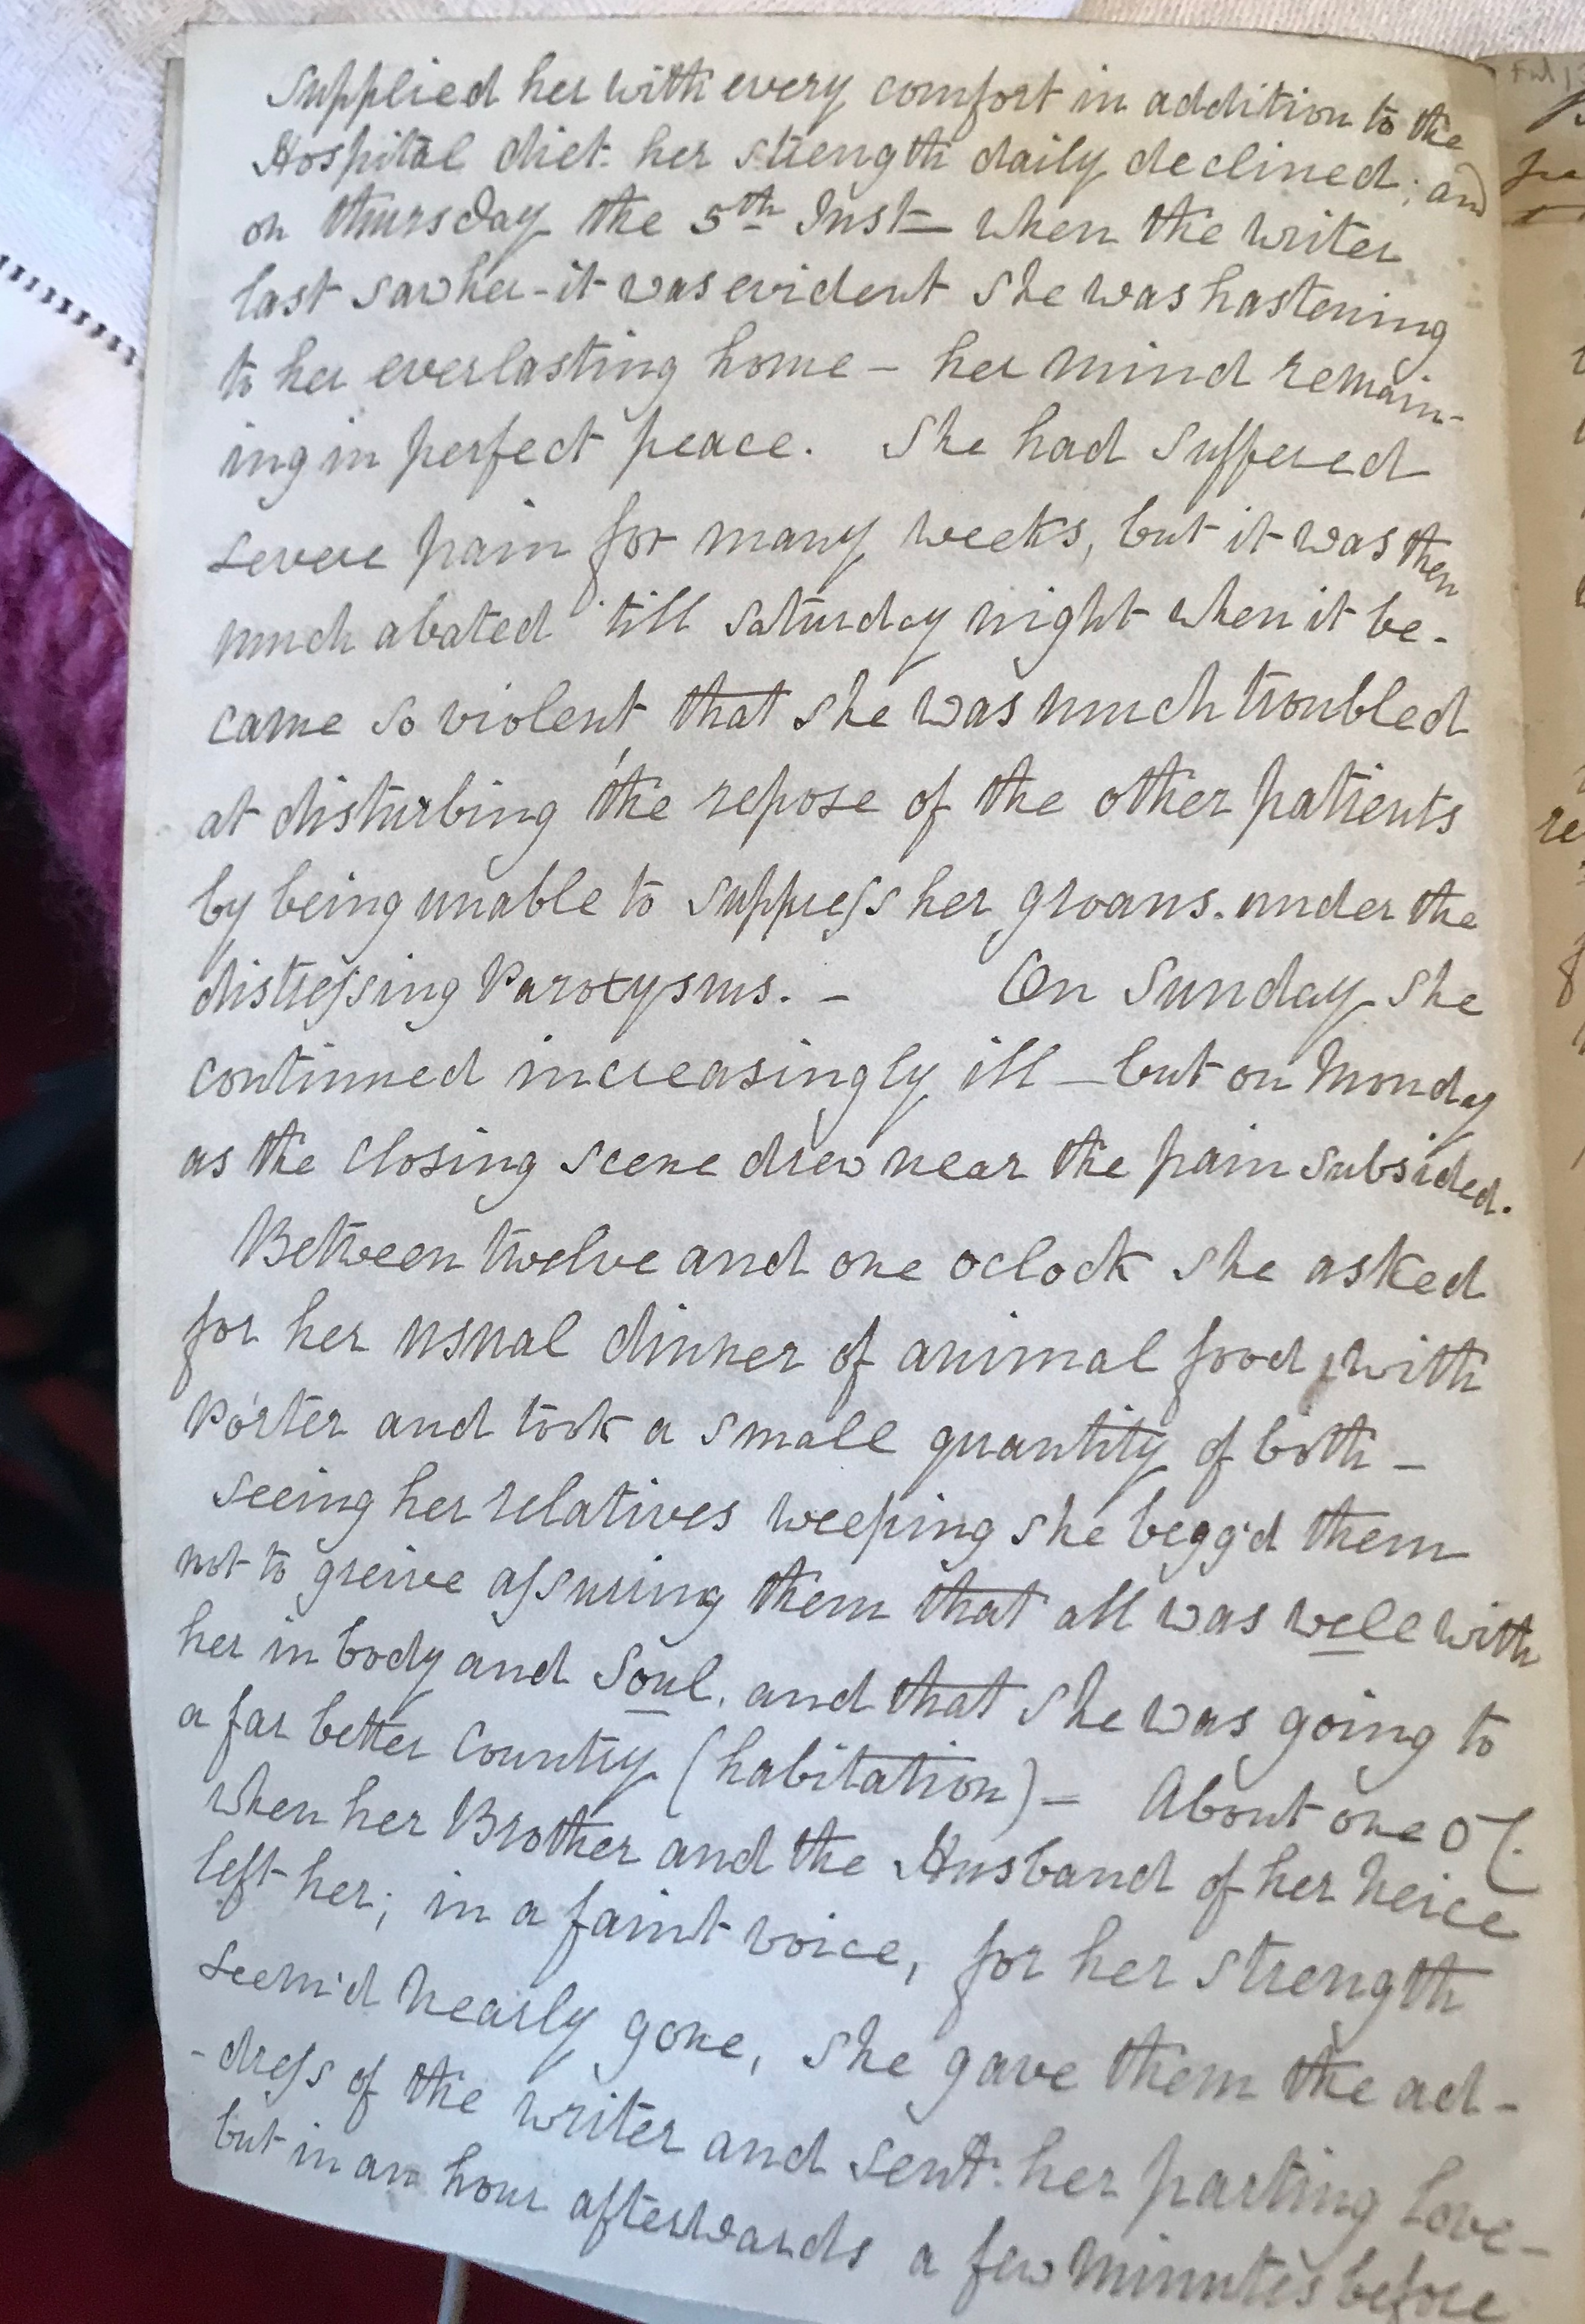 supplied her with every comfort in addition to the
Hospital diet. her strength daily declined; and
on thursday the 5th Inst- when the writer
last saw her - it was evident she was hastening
to her everlasting home - her mind remain-
ing in perfect peace. She had suffered
severe pain for many weeks, but it was then
much abated 'till saturday night when it be-
came so violent, that she was much troubled
at disturbing the repose of the other patients
by being unable to suppress her groans. under the
distressing Paroxysms. - On Sunday she
continued increasingly ill - but on Monday
as the closing scene drew near the pain subsided.
Between twelve and one oclock she asked
for her usual dinner of animal food, with
Porter and took a small quantity of both -
seeing her relatives weeping she begg'd them
not to greive assuring them that all was well with
her in body and soul. and that she was going to
a far better Country (habitation) - About one O C.
when her Brother and the Husband of her Neice
left her; in a faint voice, for her strength
seem'd nearly gone, she gave them the ad-
-dress of the writer and sent. her parting love -
but in an hour afterwards a few minutes before
re